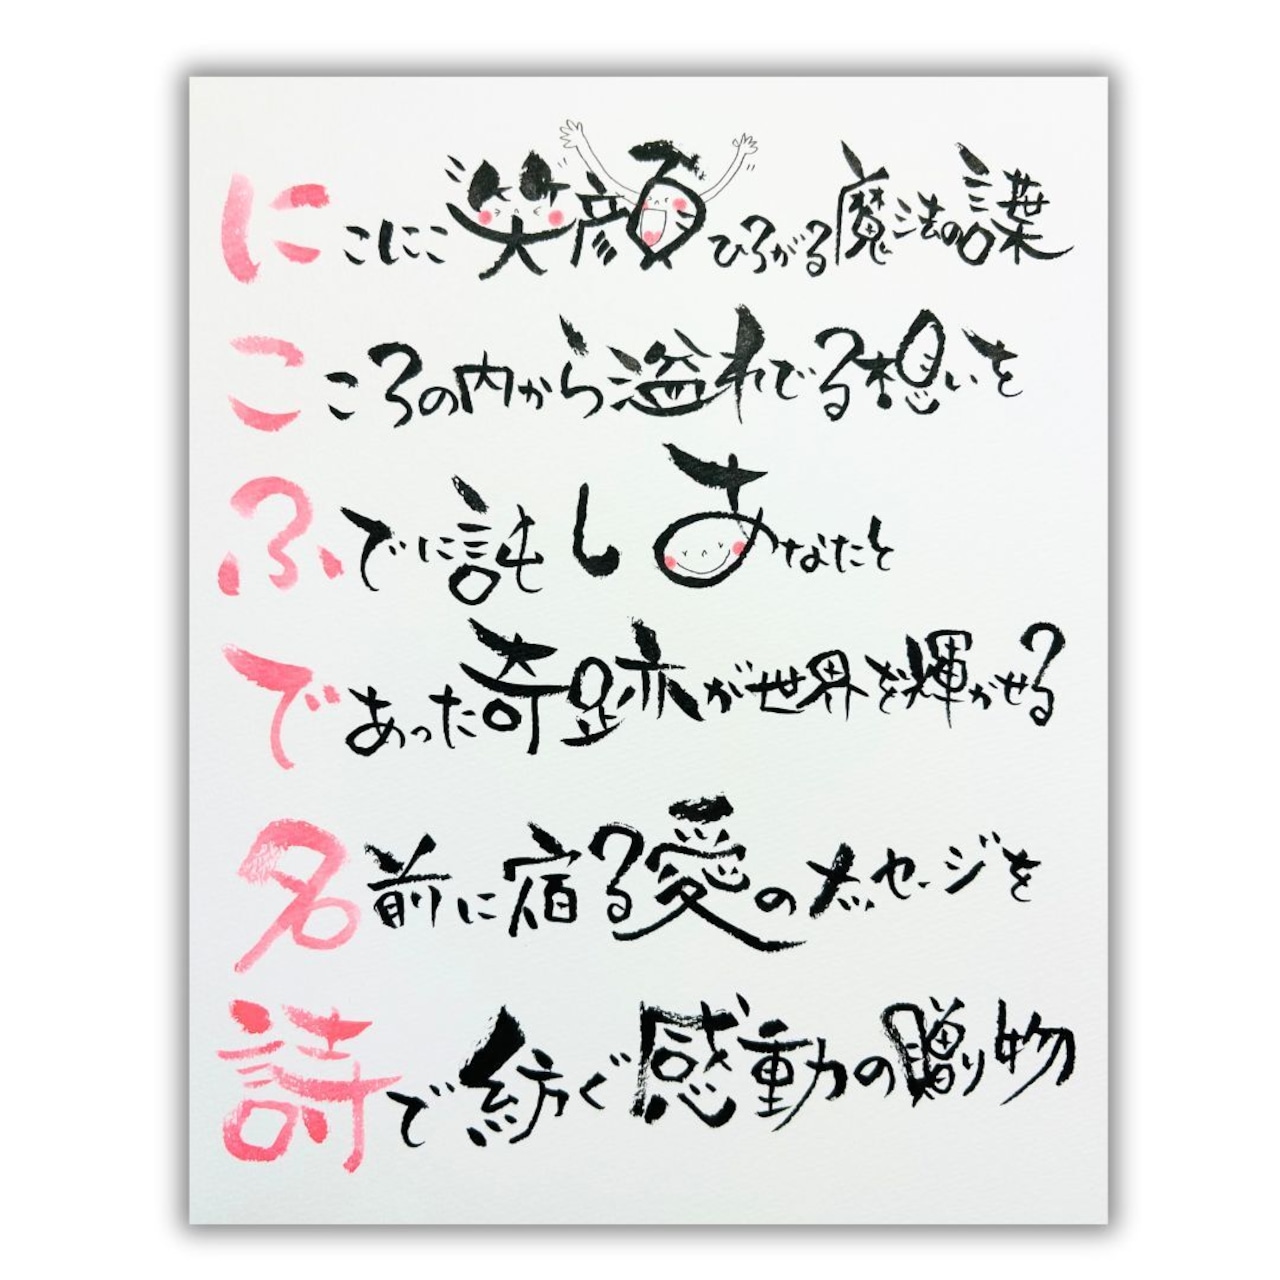 にこにこ笑顔ひろがる魔法の言葉
こころの内から溢れでる想いを
ふでに託しあなたと
であった奇跡が世界を輝かせる
名前に宿る愛のメッセージを
詩で紡ぐ感動の贈り物